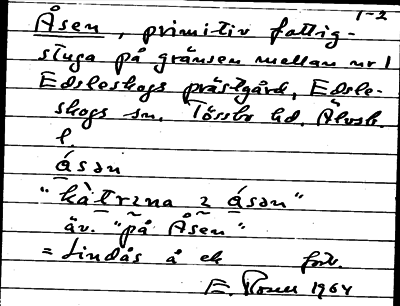 1-2
Åsen, primitiv fattig-
stuga på gränsen mellan nr 1
Edsleskogs prästgård, Edsle-
skogs sn. Tössbo hd. Älvsb.
l
åsən
"kàtrɪna ɪ åsən"
äv. "på Åsen"
= Lindås å ek
E. 1964